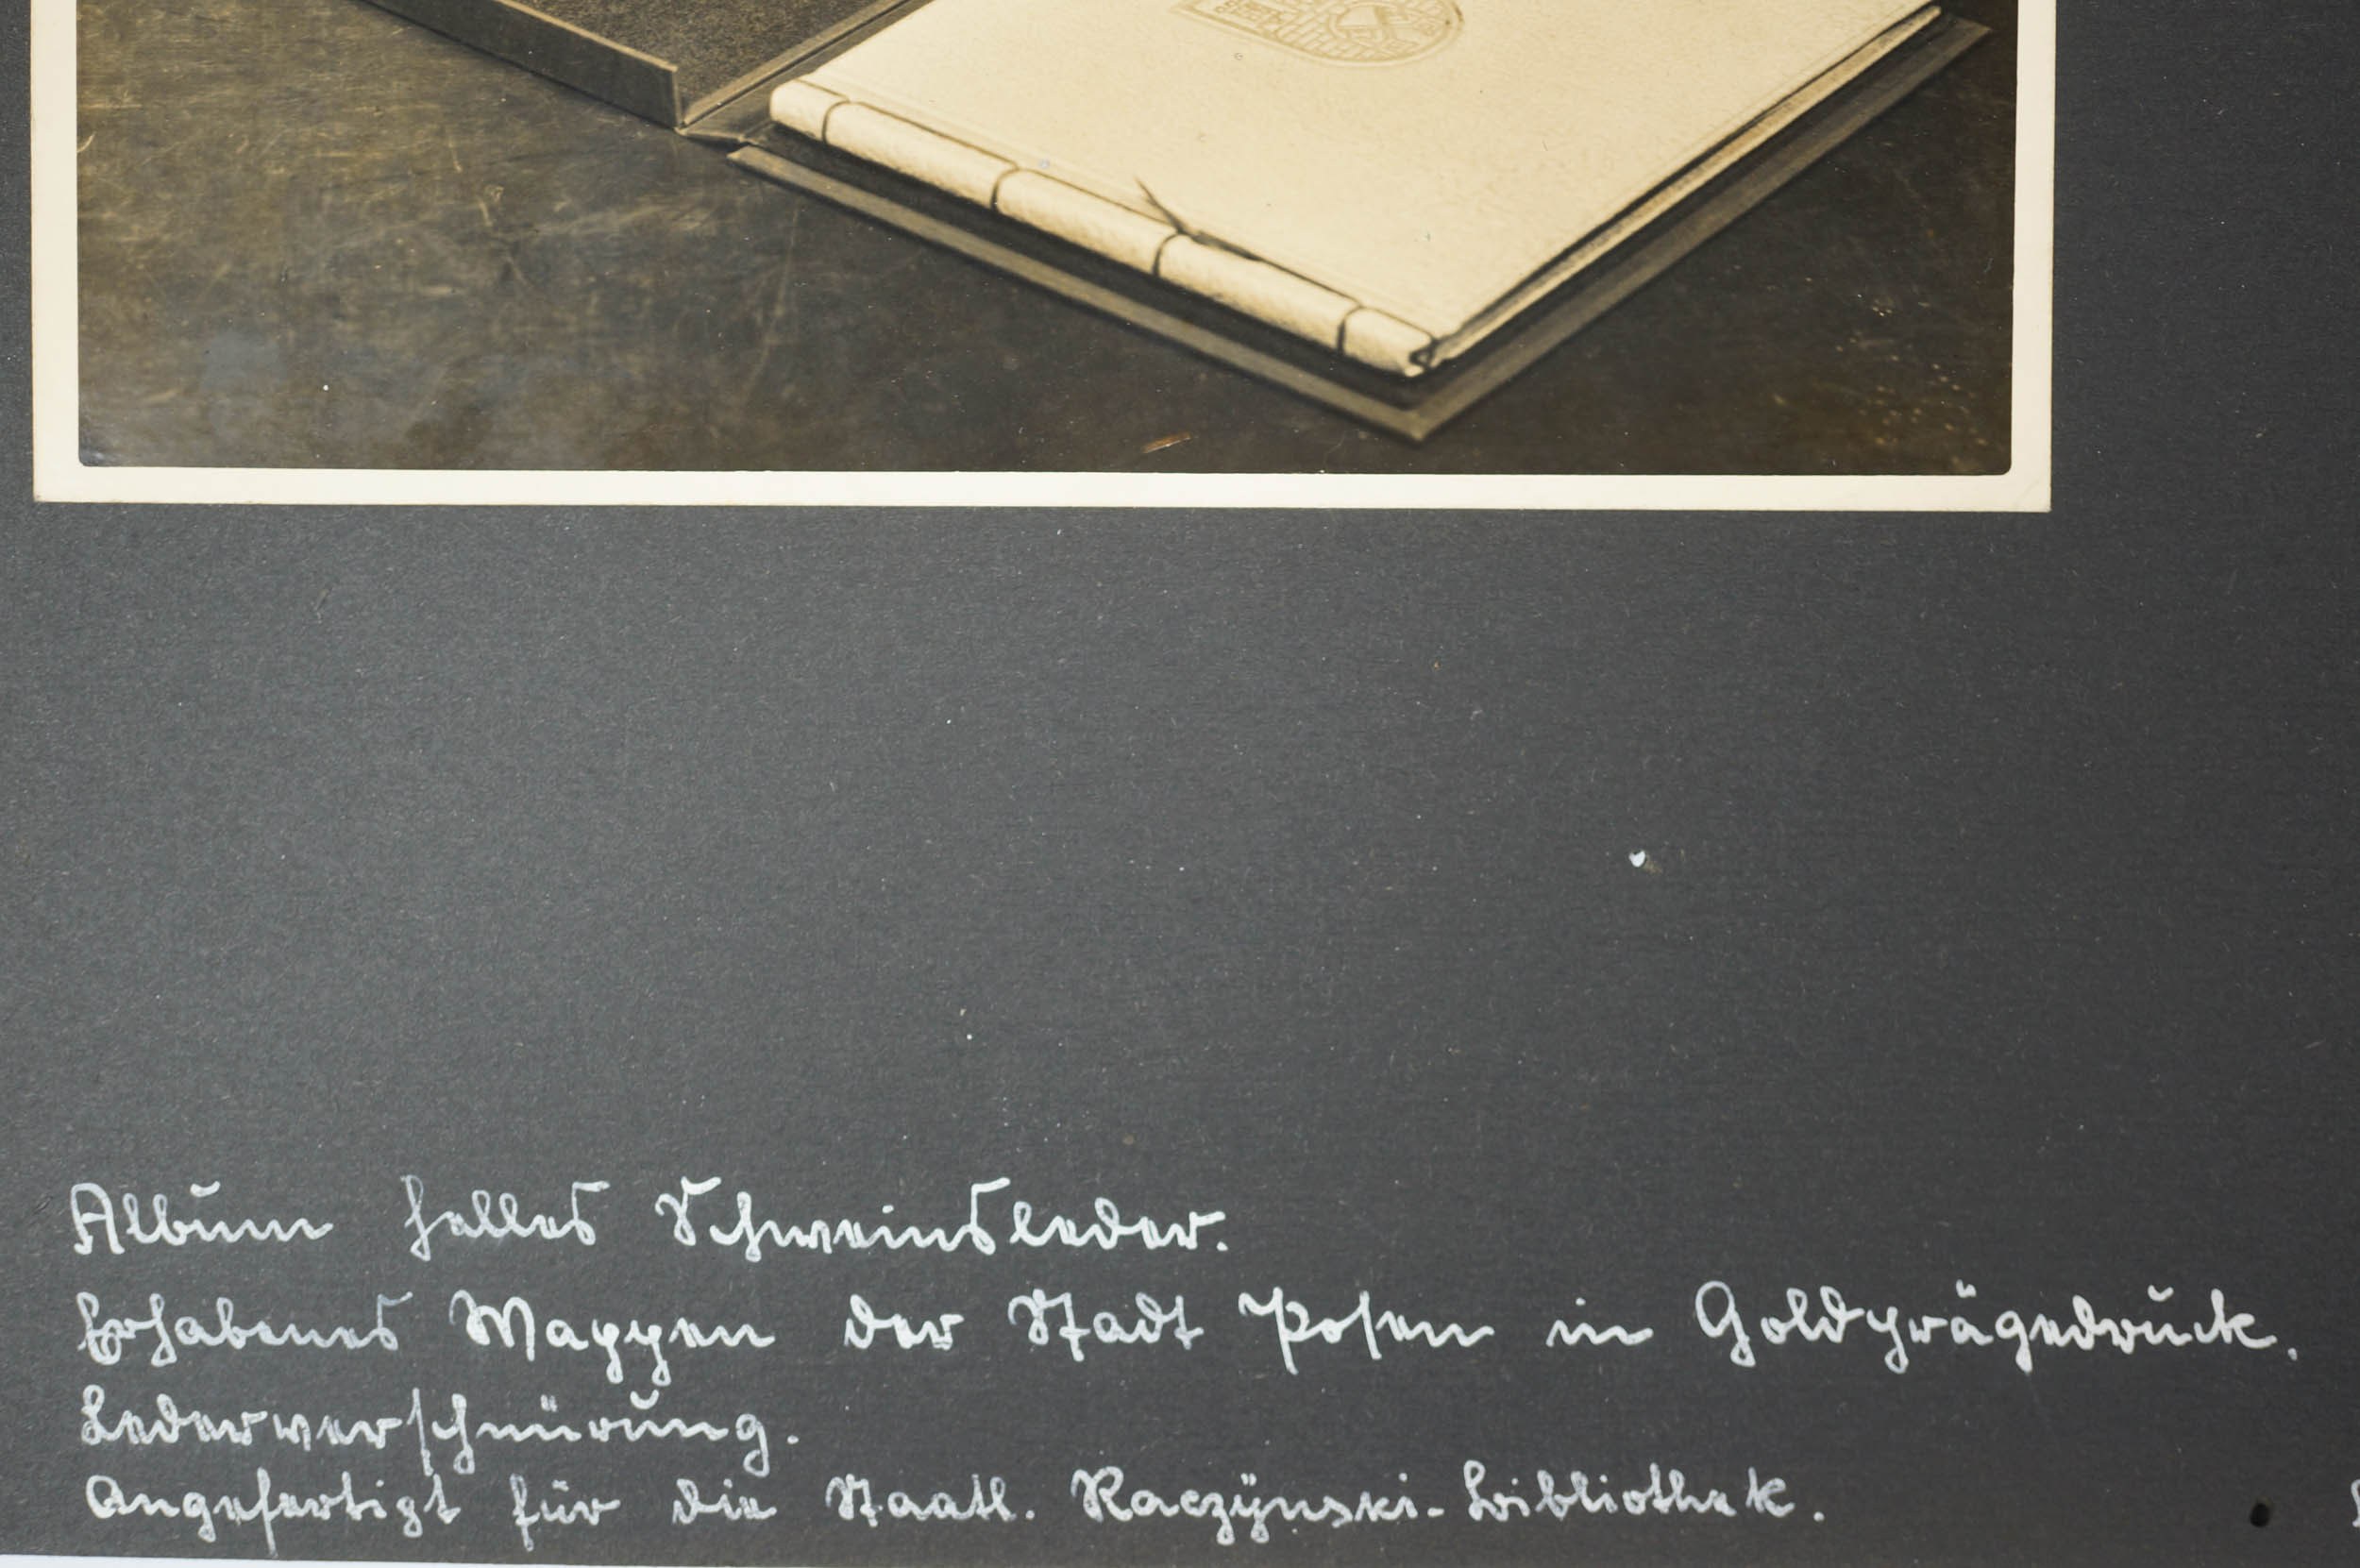 Album helles Schweinsleder.
Erhabenes Wappen der Stadt Posen in Goldprägedruck.
Lederverschnürung.
Angefertigt für die Staatl. Raczÿnski-Bibliothek.